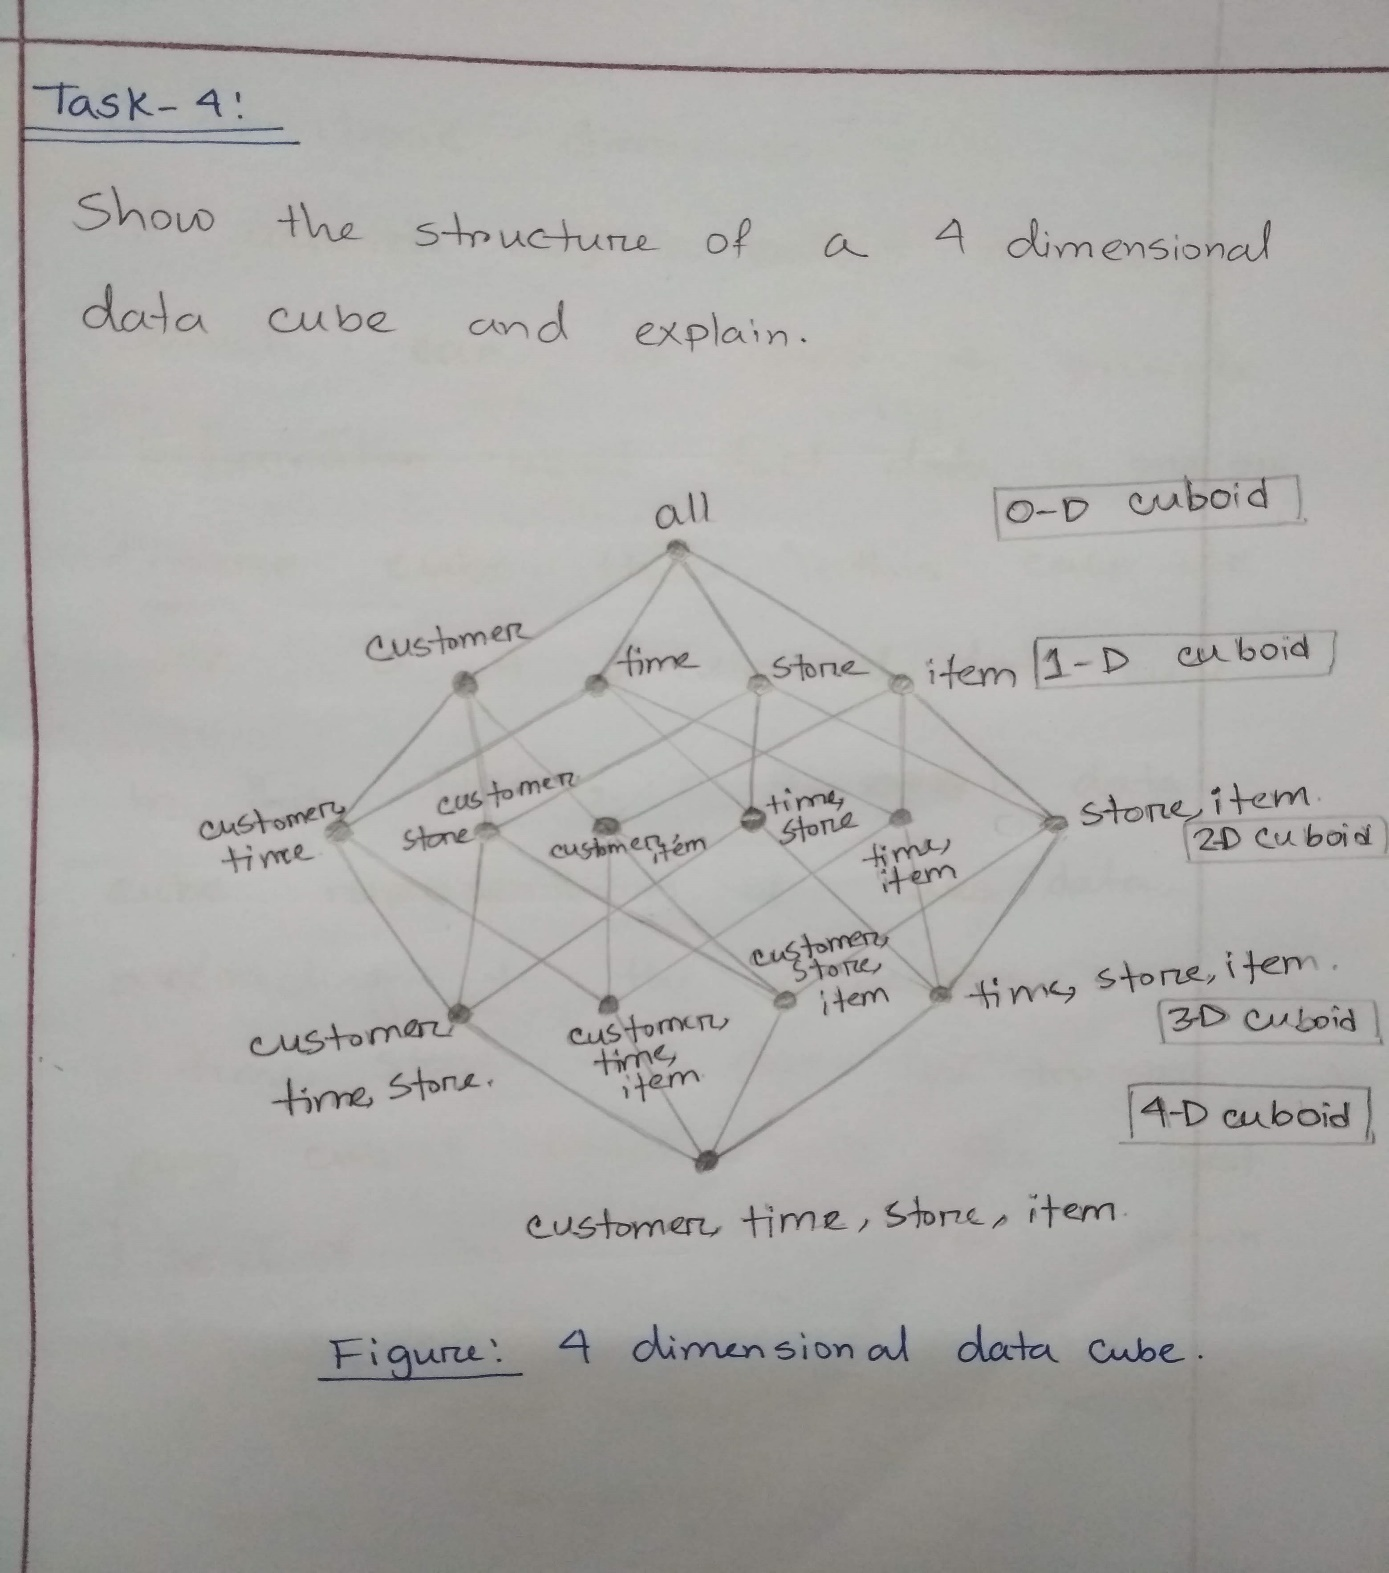 Task-4:
Show the structure of a 4 dimensional
data cube and explain.
all
0-D cuboid
customer
time
store
item
1-D cuboid
customer,
time
customer
store
customer, item
time,
store
time,
item
store, item.
2-D cuboid
customer
time, store.
customer,
time,
item
customer,
store,
item
time, store, item.
3-D cuboid
4-D cuboid
customer, time, store, item.
Figure: 4 dimensional data cube.